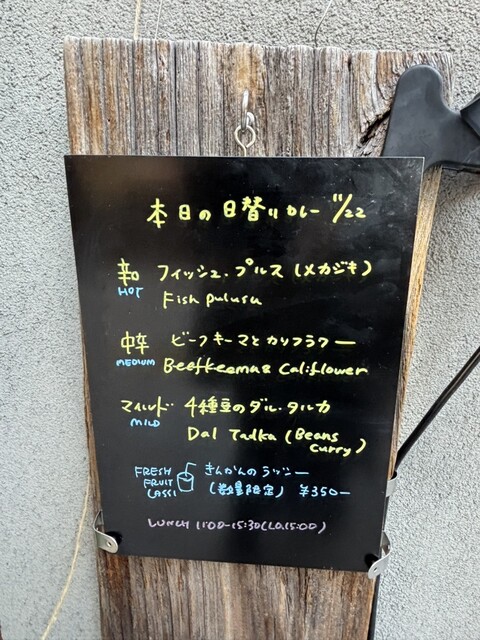 本日の日替りカレー 11/22
辛口 フィッシュ.プルス (メカジキ)
HOT Fish pulusu
中辛 ビーフキーマとカリフラワー
MEDIUM Beefkeema & Califlower
マイルド 4種豆のダル.タルカ
MILD Dal Tadka (Beans curry)
FRESH FRUIT LASSI きんかんのラッシー
(数量限定) ¥350-
LUNCH 11:00-15:30(L.O.15:00)